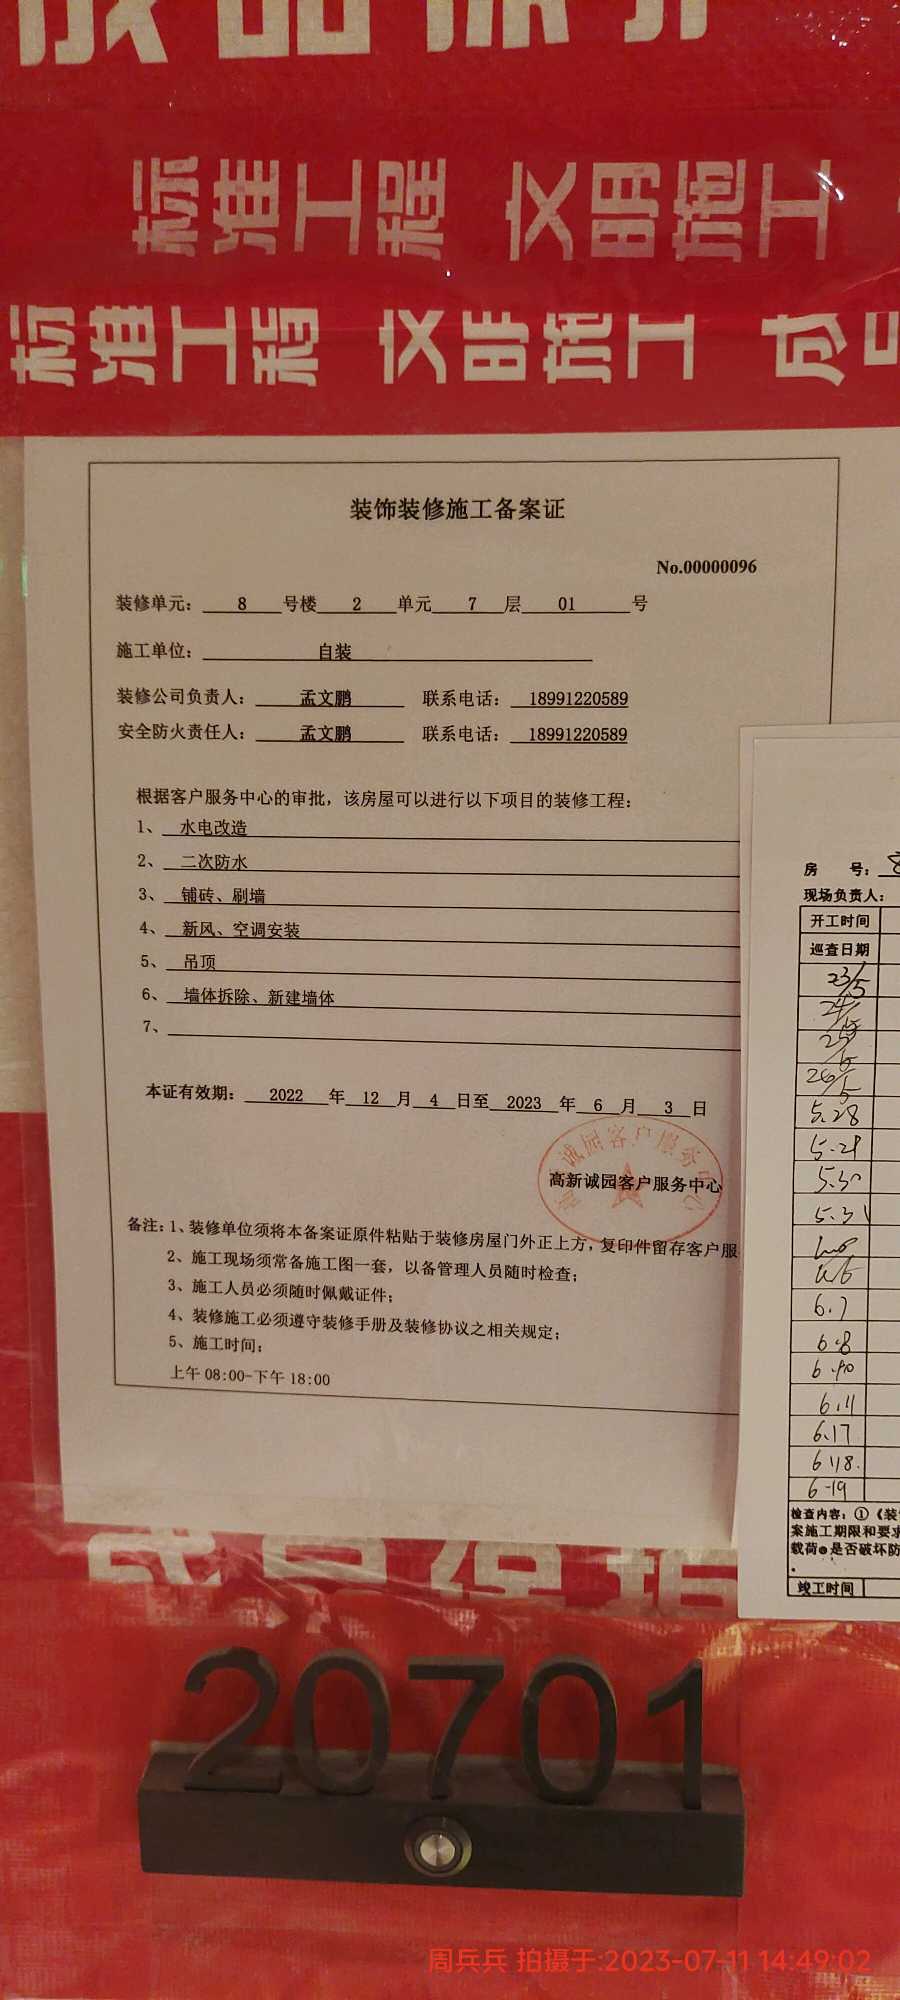 成品保护
标准工程 文明施工
标准工程 文明施工 成品
装饰装修施工备案证
No.00000096
装修单元: 8 号楼 2 单元 7 层 01 号
施工单位: 自装
装修公司负责人: 孟文鹏 联系电话: 18991220589
安全防火责任人: 孟文鹏 联系电话: 18991220589
根据客户服务中心的审批，该房屋可以进行以下项目的装修工程:
1、 水电改造
2、 二次防水
3、 铺砖、刷墙
4、 新风、空调安装
5、 吊顶
6、 墙体拆除、新建墙体
7、
本证有效期: 2022 年 12 月 4 日至 2023 年 6 月 3 日
高新诚园客户服务中心
高新诚园客户服务中心
备注: 1、装修单位须将本备案证原件粘贴于装修房屋门外正上方，复印件留存客户服
2、施工现场须常备施工图一套，以备管理人员随时检查;
3、施工人员必须随时佩戴证件;
4、装修施工必须遵守装修手册及装修协议之相关规定;
5、施工时间;
上午 08:00-下午 18:00
房 号: 8
现场负责人:
开工时间
巡查日期
23/5
24/5
25/5
26/5
5.28
5.29
5.30
5.31
6.7
6.8
6.10
6.11
6.17
6.18.
6-19
检查内容: ①《装
案施工期限和要求
载荷 是否破坏防
竣工时间
成品保护
20701
周兵兵 拍摄于:2023-07-11 14:49:02